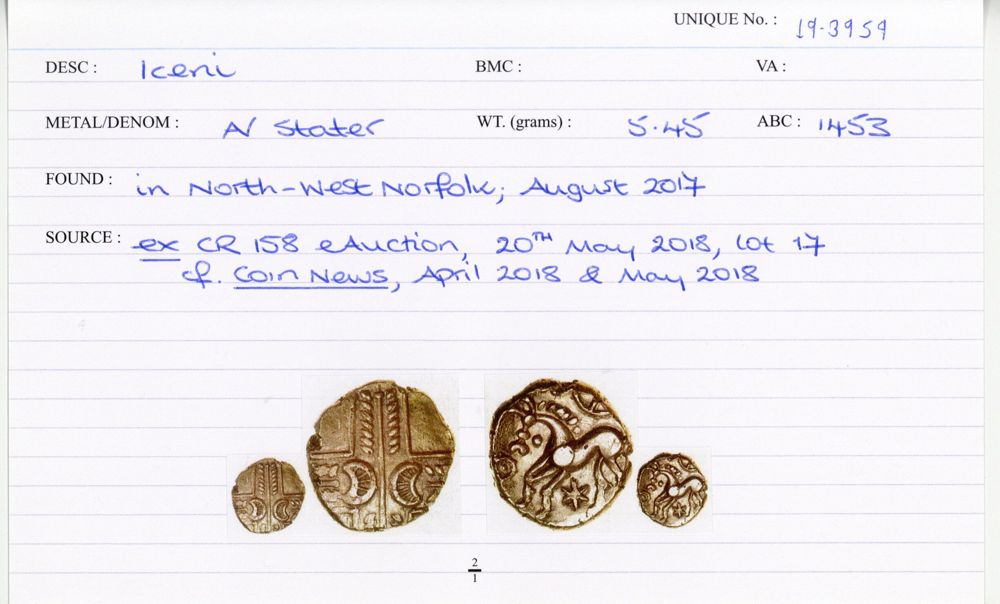 UNIQUE No. : 19.3959
DESC : Iceni BMC : VA :
METAL/DENOM : AV Stater WT. (grams) : 5.45 ABC : 1453
FOUND : in North-West Norfolk; August 2017
SOURCE : ex CR 158 eAuction, 20TH May 2018, lot 17
cf. Coin News, April 2018 & May 2018
2
1